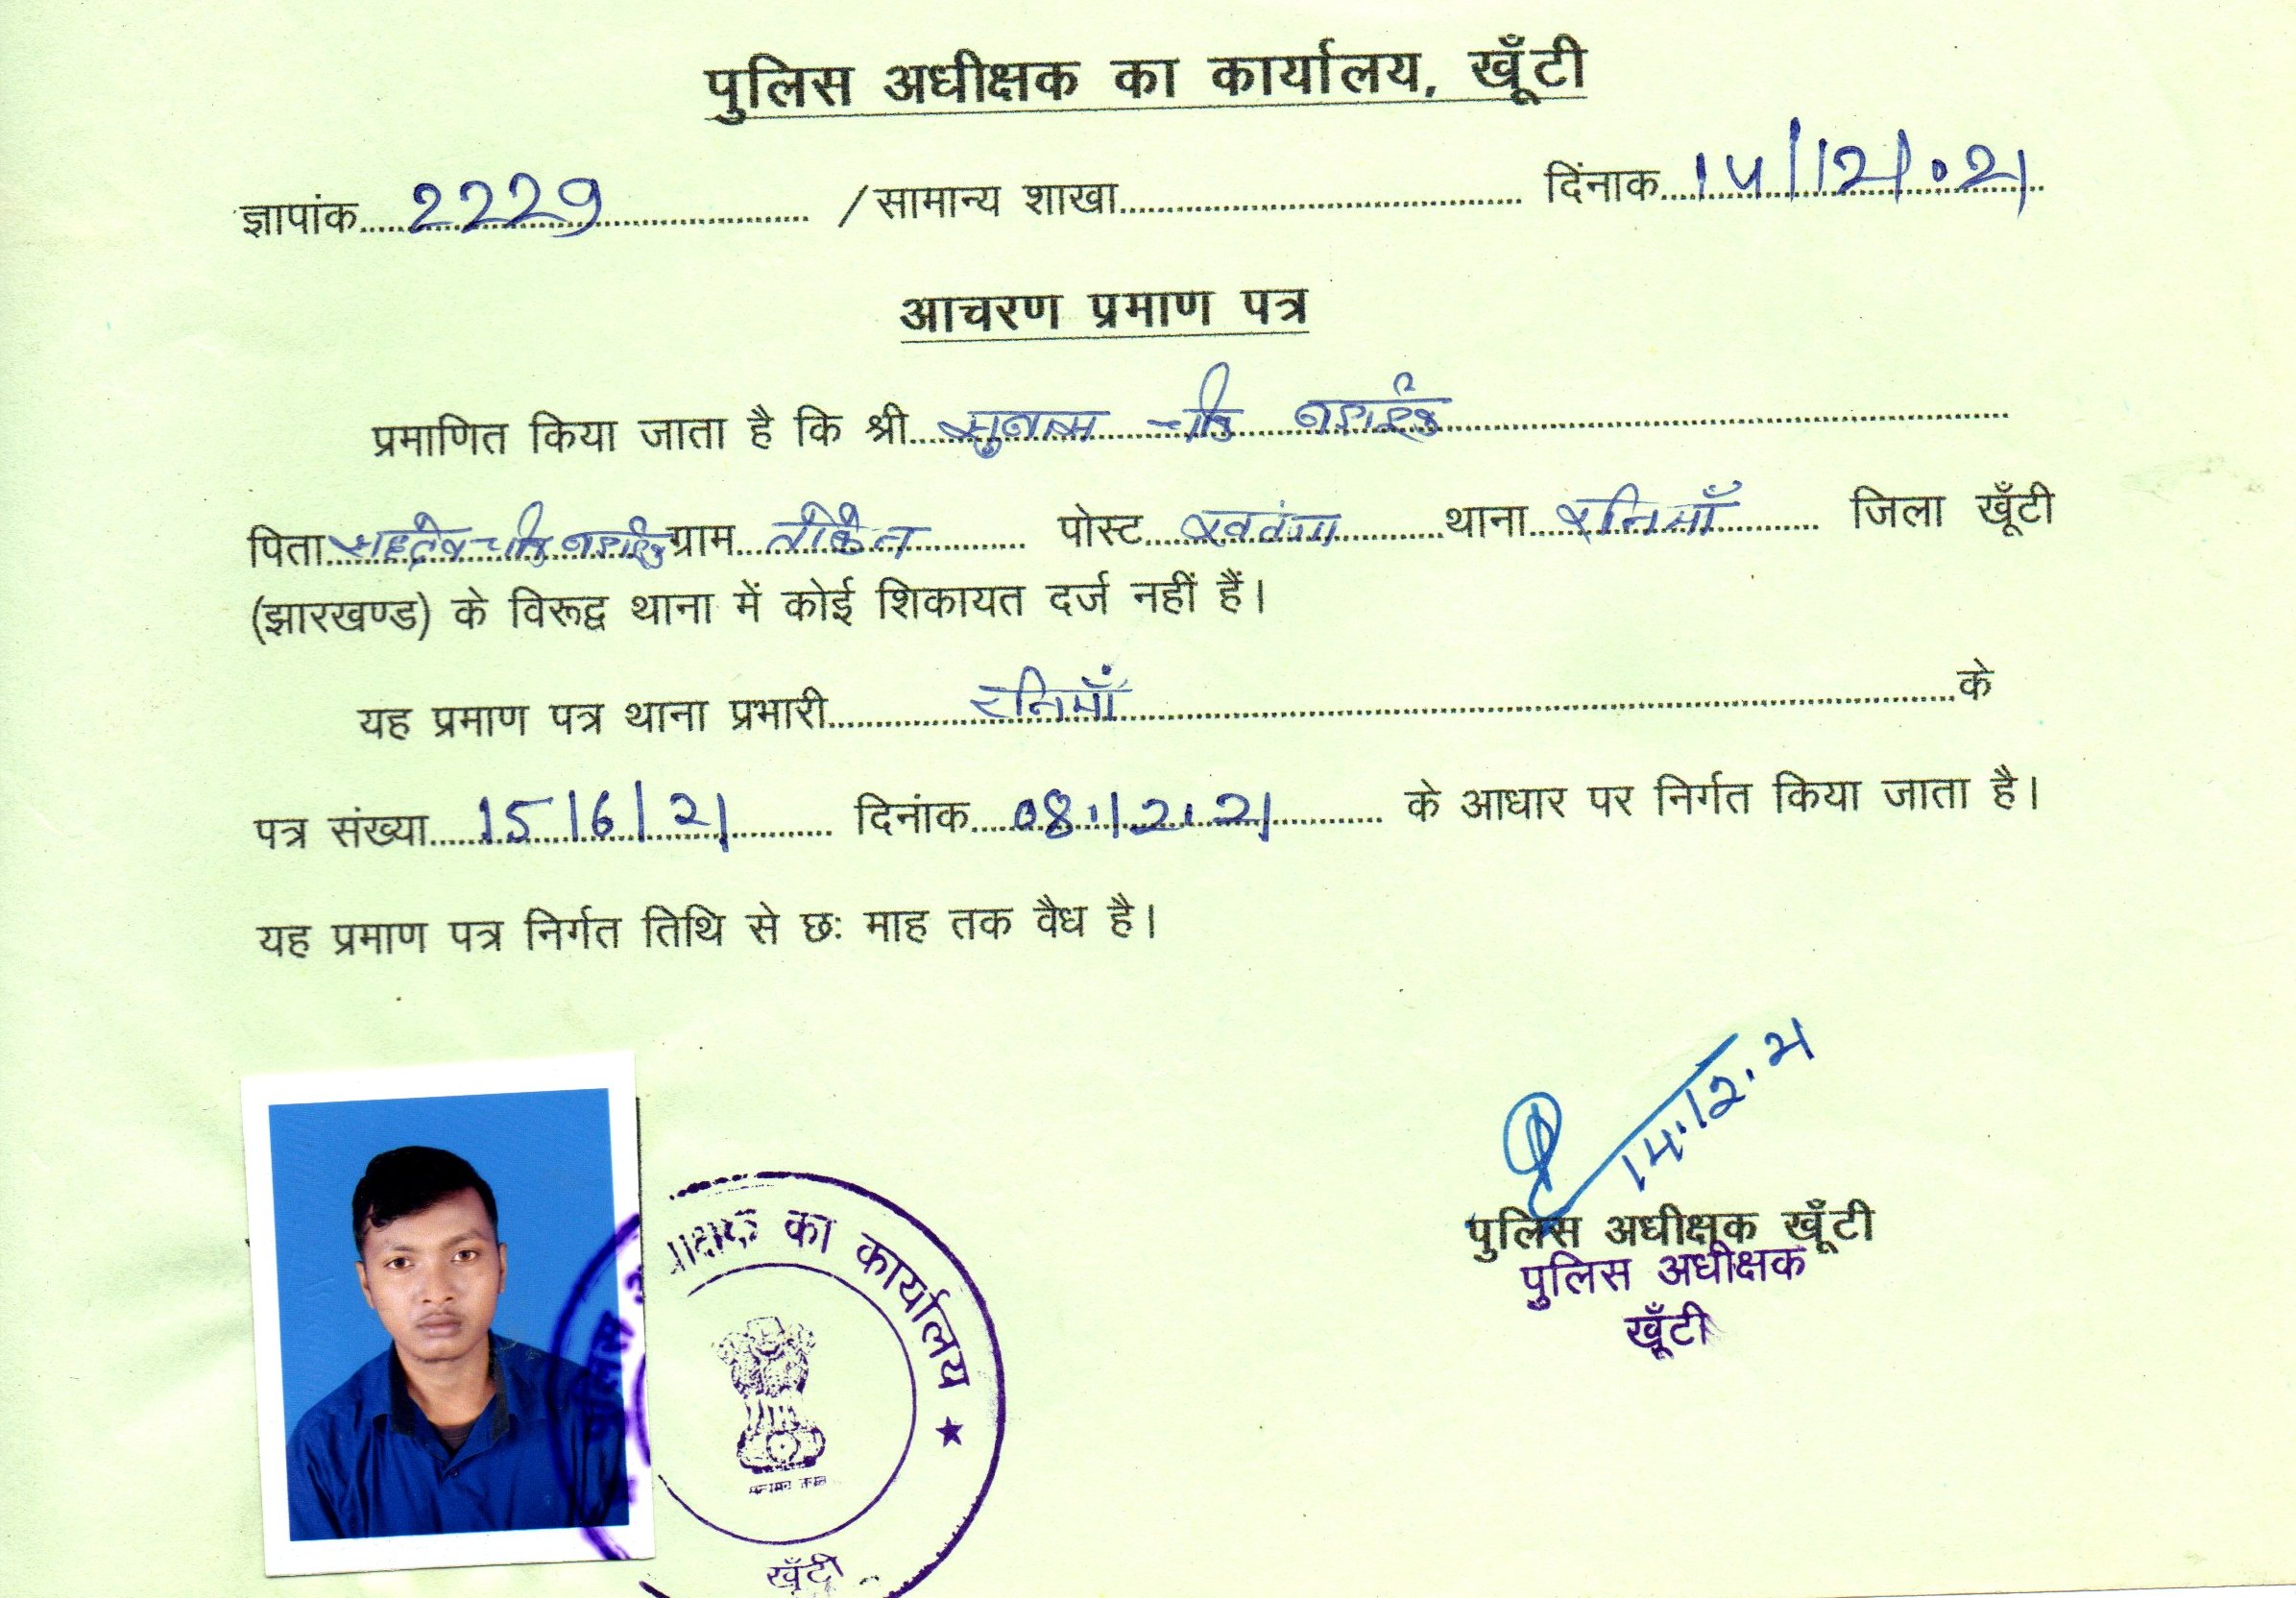 पुलिस अधीक्षक का कार्यालय, खूँटी
ज्ञापांक 2229 / सामान्य शाखा दिंनाक 14/12/.21
आचरण प्रमाण पत्र
प्रमाणित किया जाता है कि श्री
पिता ग्राम पोस्ट थाना रनियाँ जिला खूँटी
(झारखण्ड) के विरूद्व थाना में कोई शिकायत दर्ज नहीं हैं।
यह प्रमाण पत्र थाना प्रभारी रनियाँ के
पत्र संख्या दिनांक 08.12.21 के आधार पर निर्गत किया जाता है।
यह प्रमाण पत्र निर्गत तिथि से छः माह तक वैध है।
14.12.21
पुलिस अधीक्षक खूँटी
पुलिस अधीक्षक
खूँटी
पुलिस का कार्यालय ★
खूँटी